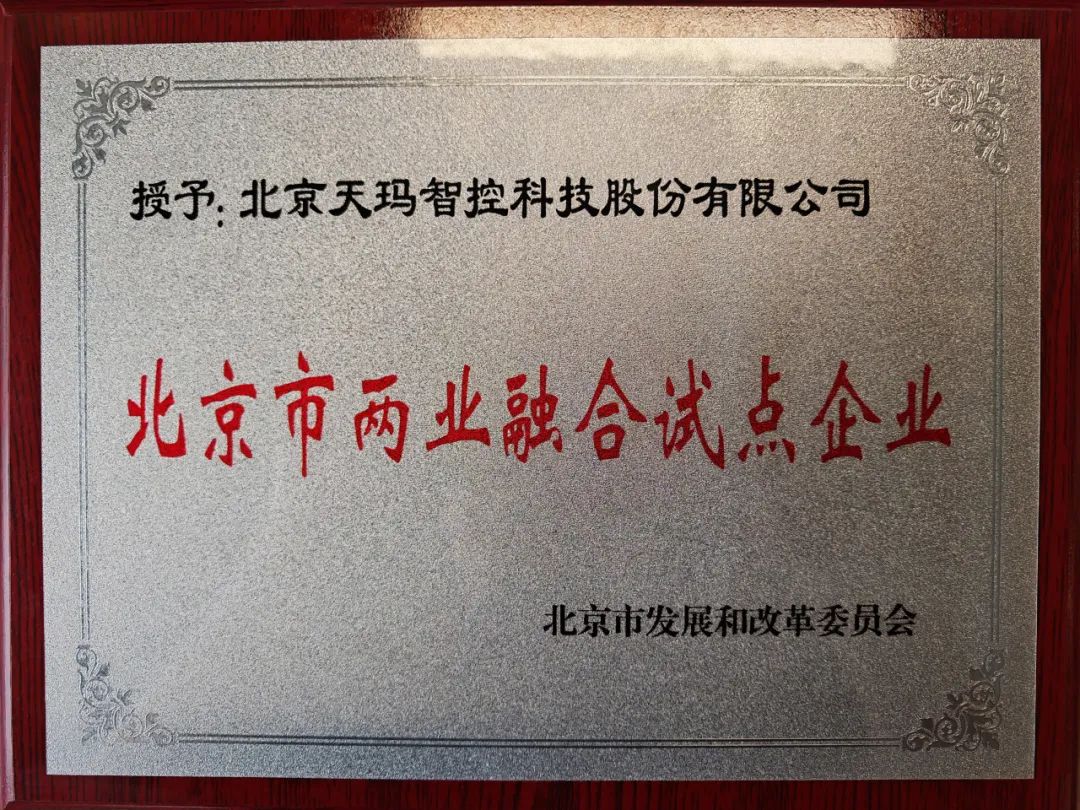 授予:北京天玛智控科技股份有限公司
北京市两业融合试点企业
北京市发展和改革委员会